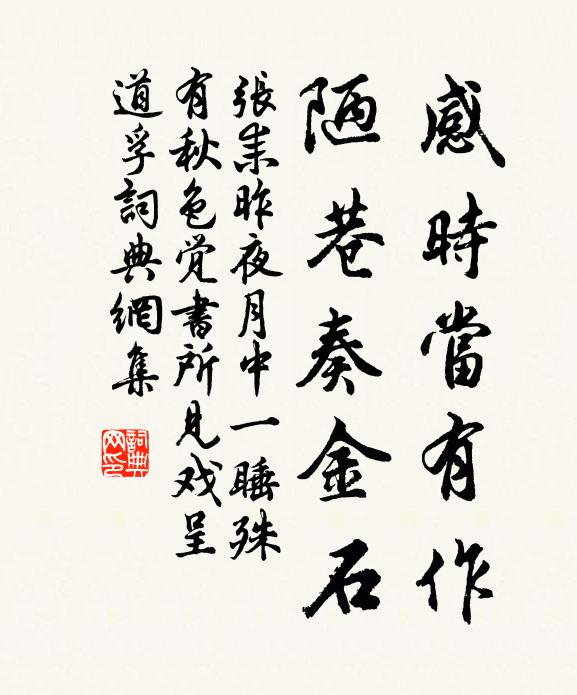 感時當有作
陋巷奏金石
張耒昨夜月中一睡殊
有秋色覚書所見戏呈
道孚詞典網集
詞典
网印